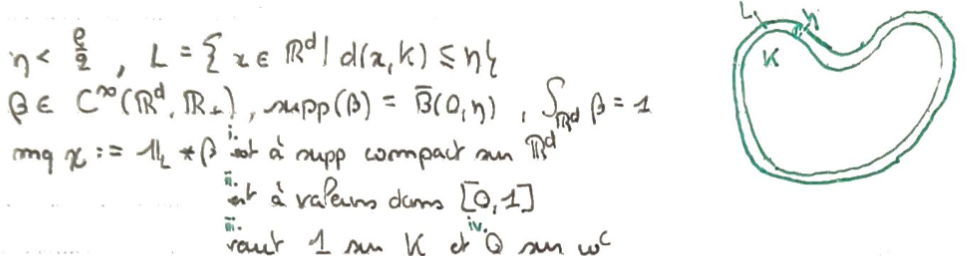 L η
K
η < ρ/2 , L = { x ∈ ℝᵈ | d(x,K) ≤ η }
β ∈ C^∞(ℝᵈ, ℝ₊), supp(β) = B̄(0,η) , ∫_ℝᵈ β = 1
mq χ := 𝟙_L * β i. est à supp compact sur ℝᵈ
ii. est à valeurs dans [0,1]
iii. vaut 1 sur K et iv. 0 sur ωᶜ